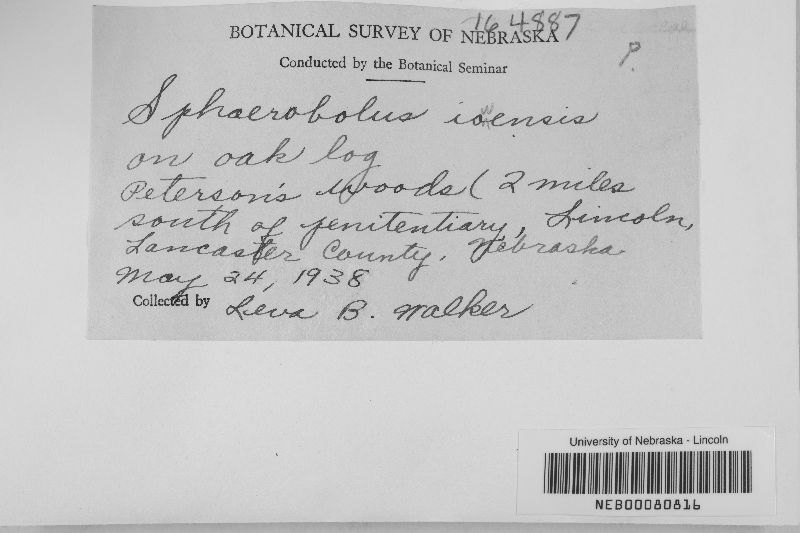 164887
BOTANICAL SURVEY OF NEBRASKA
P.
Conducted by the Botanical Seminar
Sphaerobolus iowensis
on oak log
Peterson's woods (2 miles
south of penitentiary, Lincoln,
Lancaster County, Nebraska
May 24, 1938
Collected by Leva B. Walker
University of Nebraska - Lincoln
NEB00080816